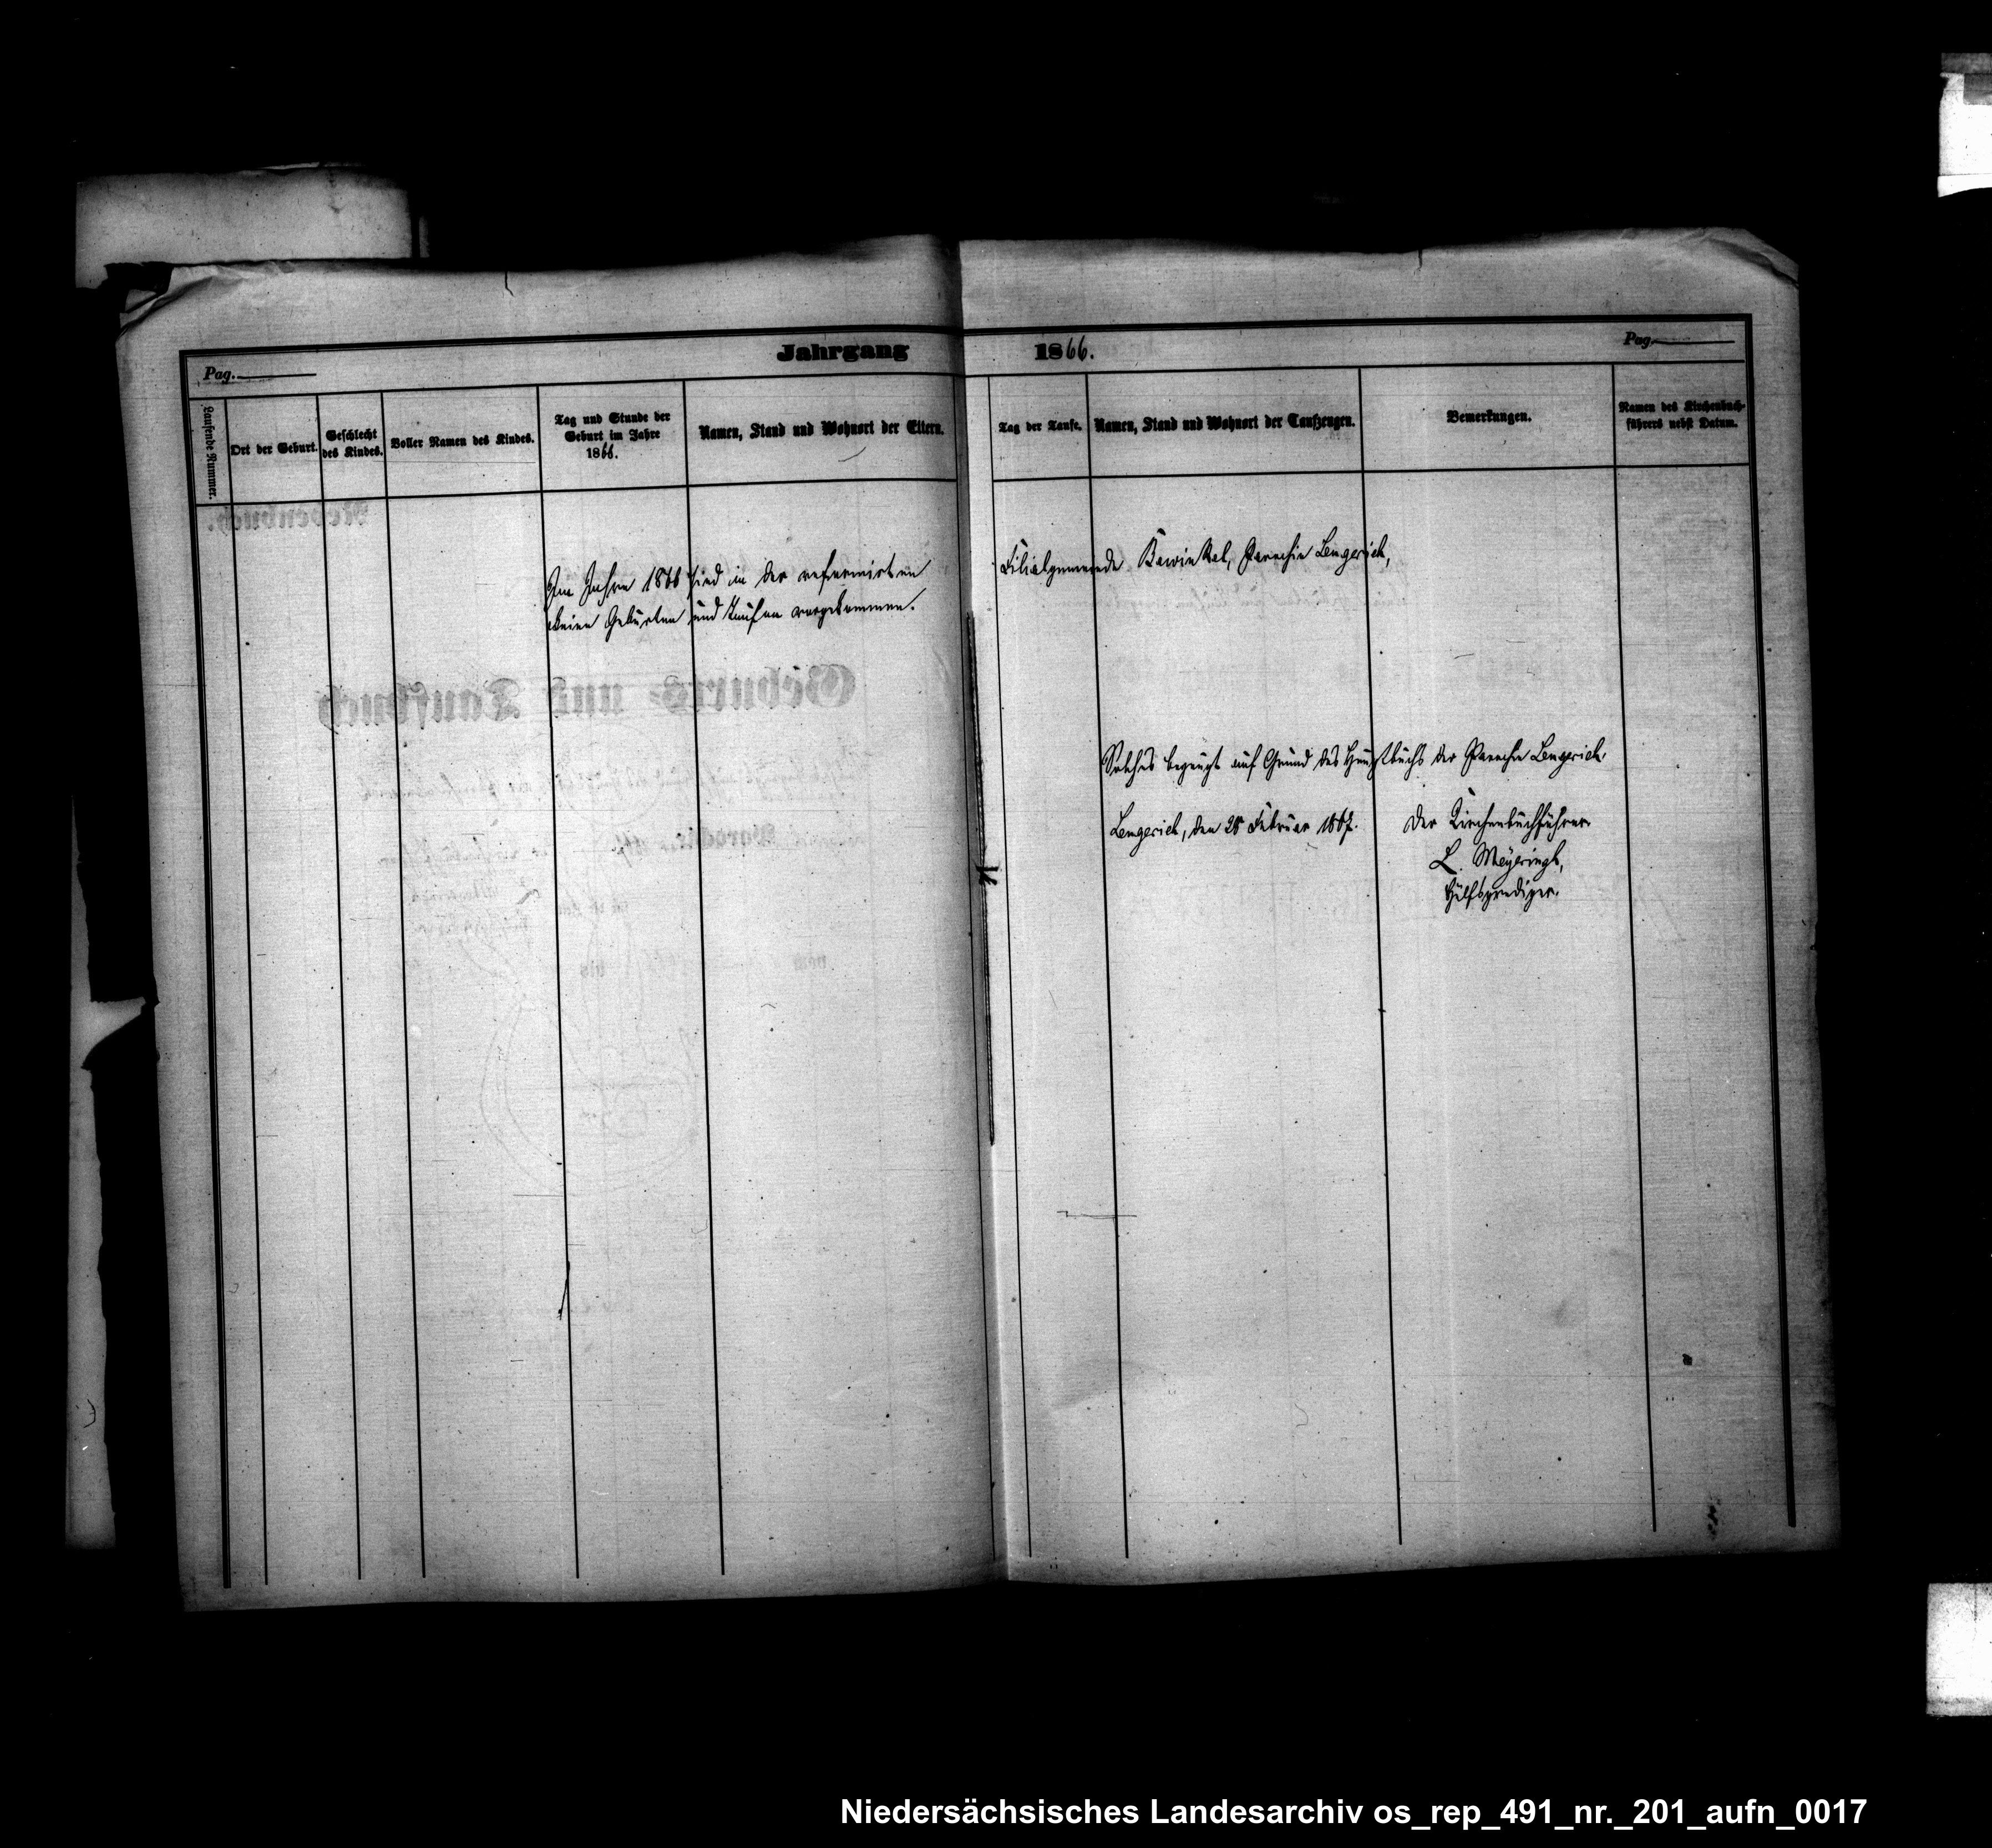 Jahrgang 1866.
Pag.
Pag.
Laufende Nummer.
Ort der Geburt.
Geschlecht
des Kindes.
Voller Namen des Kindes.
Tag und Stunde der
Geburt im Jahre
1866.
Namen, Stand und Wohnort der Eltern.
Tag der Taufe.
Namen, Stand und Wohnort der Taufzeugen.
Bemerkungen.
Namen des Kirchenbuch-
führers nebst Datum.
Im Jahre 1866 sind in der reformirten Filialgemeinde Bawinkel, Parochie Lengerich,
keine Geburten und Taufen vorgekommen.
Solches bezeugt auf Grund des Hauptbuchs der Parochie Lengerich.
Lengerich, den 28 Februar 1867.
Der Kirchenbuchführer.
L. Meyeringh,
Hülfsprediger.
Nebenbuch.
Geburts- und Taufbuch
Parochie
vom
bis
Niedersächsisches Landesarchiv os_rep_491_nr._201_aufn_0017